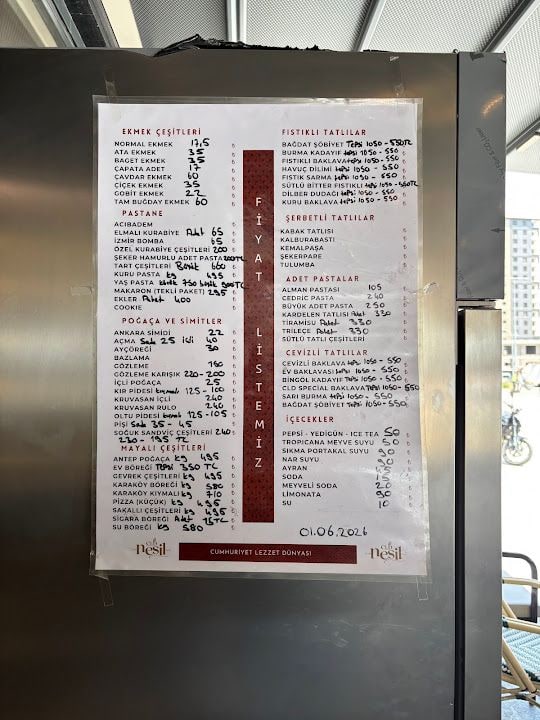 EKMEK ÇEŞİTLERİ
NORMAL EKMEK 17,5 ₺
ATA EKMEK 35 ₺
BAGET EKMEK 25 ₺
ÇAPATA ADET 17 ₺
ÇAVDAR EKMEK 60 ₺
ÇİÇEK EKMEK 35 ₺
GOBİT EKMEK 22 ₺
TAM BUĞDAY EKMEK 60 ₺
PASTANE
ACIBADEM ₺
ELMALI KURABİYE Adet 65 ₺
İZMİR BOMBA 65 ₺
ÖZEL KURABİYE ÇEŞİTLERİ 200 ₺
ŞEKER HAMURLU ADET PASTA
TART ÇEŞİTLERİ 600 ₺
KURU PASTA kg 495 ₺
YAŞ PASTA 750
MAKARON (TEKLİ PAKET) 295
EKLER Paket 400 ₺
COOKIE ₺
POĞAÇA VE SİMİTLER
ANKARA SİMİDİ 22 ₺
AÇMA Sade 25 içli 40 ₺
AYÇÖREĞİ 30 ₺
BAZLAMA ₺
GÖZLEME 190 ₺
GÖZLEME KARIŞIK 220-200 ₺
İÇLİ POĞAÇA 25 ₺
KIR PİDESİ 125-100 ₺
KRUVASAN İÇLİ 240 ₺
KRUVASAN RULO 240 ₺
OLTU PİDESİ 125-105 ₺
PİŞİ Sade 35 - 45 ₺
SOĞUK SANDVİÇ ÇEŞİTLERİ 240 ₺
230 - 195 TL
MAYALI ÇEŞİTLERİ
ANTEP POĞAÇA kg 495 ₺
EV BÖREĞİ Tepsi 350 TL
GEVREK ÇEŞİTLERİ kg 495 ₺
KARAKÖY BÖREĞİ kg 580 ₺
KARAKÖY KIYMALI kg 710 ₺
PİZZA (KÜÇÜK) kg 495 ₺
SAKALLI ÇEŞİTLERİ kg 495 ₺
SİGARA BÖREĞİ Adet 15 TL
SU BÖREĞİ kg 580 ₺
FİYAT LİSTEMİZ
FISTIKLI TATLILAR
BAĞDAT ŞÖBİYET Tepsi 1050 - 550TL
BURMA KADAYIF tepsi 1050 - 550 ₺
FISTIKLI BAKLAVA tepsi 1050 - 550 ₺
HAVUÇ DİLİMİ tepsi 1050 - 550 ₺
FISTIK SARMA tepsi 1050 - 650 ₺
SÜTLÜ BİTTER FISTIKLI tepsi 1050 - 550TL
DİLBER DUDAĞI tepsi 1050 - 550 ₺
KURU BAKLAVA tepsi 1050 - 550 ₺
ŞERBETLİ TATLILAR
KABAK TATLISI ₺
KALBURABASTI ₺
KEMALPAŞA ₺
ŞEKERPARE ₺
TULUMBA ₺
ADET PASTALAR
ALMAN PASTASI 105 ₺
CEDRIC PASTA 240 ₺
BÜYÜK ADET PASTA 250 ₺
KARDELEN TATLISI Paket 330 ₺
TİRAMİSU Paket 330 ₺
TRİLEÇE Paket 330 ₺
SÜTLÜ TATLI ÇEŞİTLERİ ₺
CEVİZLİ TATLILAR
CEVİZLİ BAKLAVA tepsi 1050 - 550 ₺
EV BAKLAVASI tepsi 1050 - 550 ₺
BİNGÖL KADAYIF Tepsi 1050 - 550 ₺
CLD SPECIAL BAKLAVA Tepsi 1050 - 550 ₺
SARI BURMA Tepsi 1050 - 550 ₺
BAĞDAT ŞÖBİYET Tepsi 1050 - 550 ₺
İÇECEKLER
PEPSİ - YEDİGÜN - ICE TEA 50 ₺
TROPICANA MEYVE SUYU 50 ₺
SIKMA PORTAKAL SUYU 90 ₺
NAR SUYU 90 ₺
AYRAN ₺
SODA 15 ₺
MEYVELİ SODA 20 ₺
LİMONATA 90 ₺
SU 10 ₺
01.06.2026
cld neşil
CUMHURİYET LEZZET DÜNYASI
cld neşil